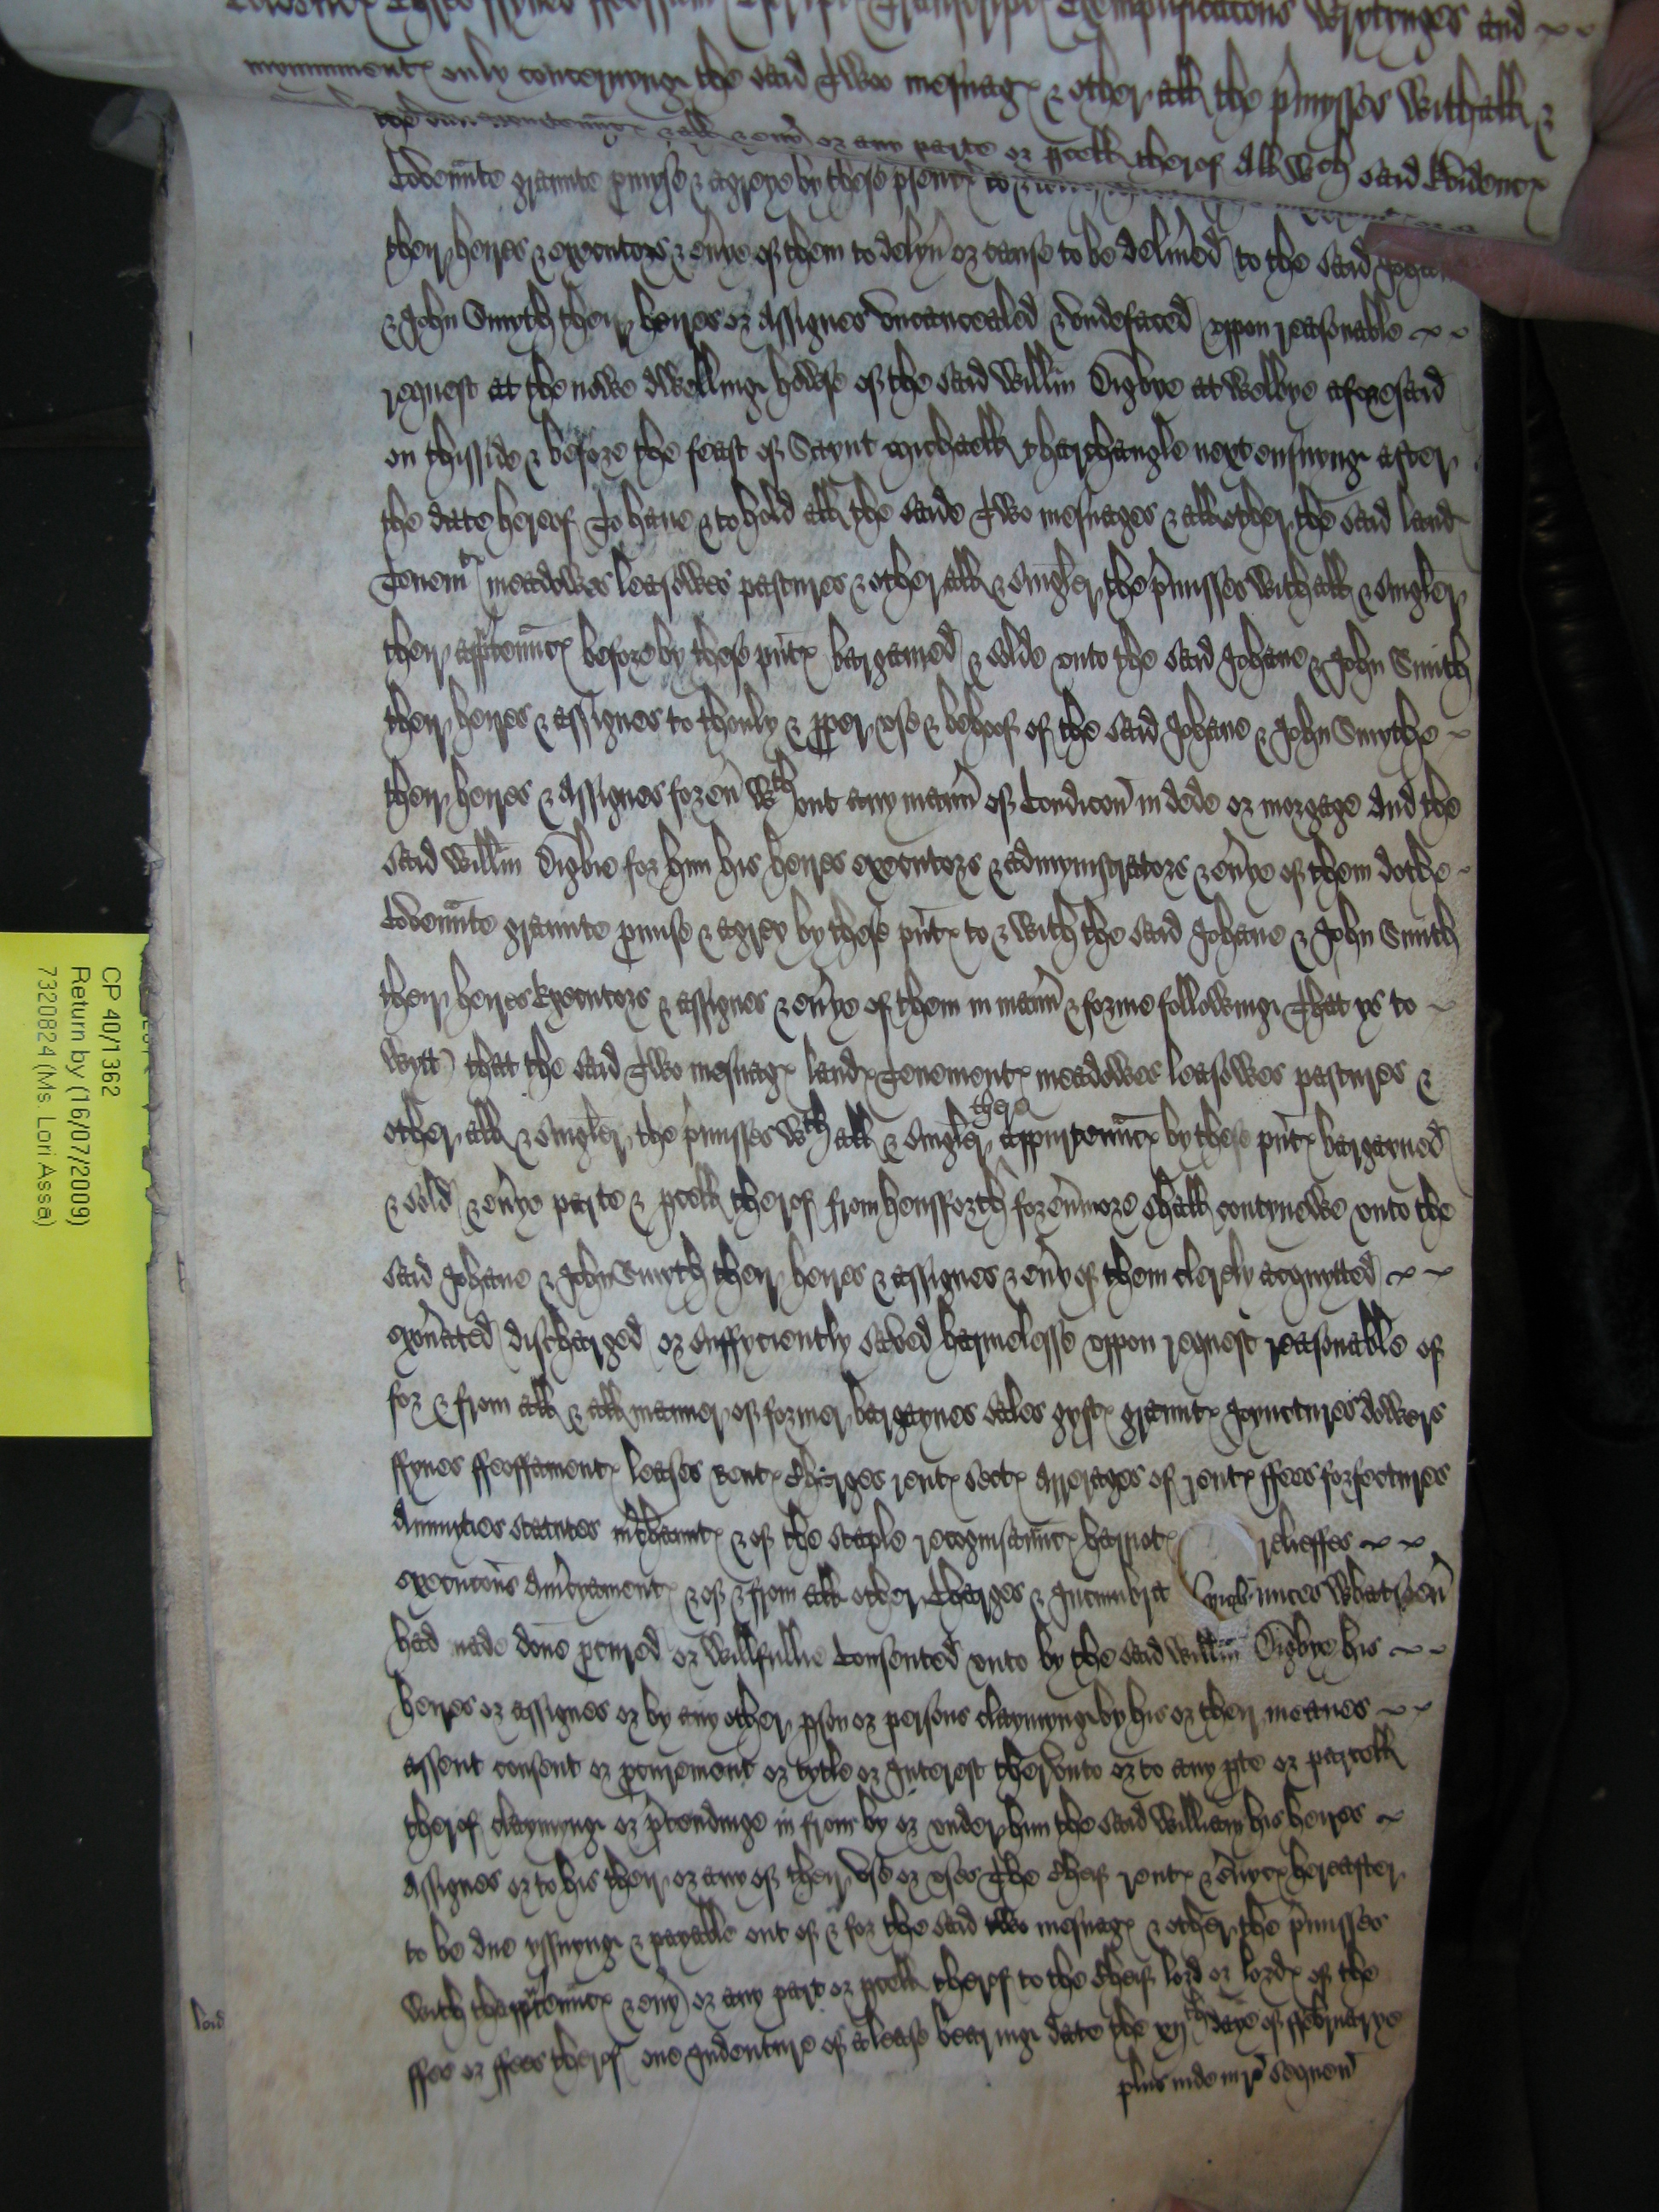 Evidencx Chres ffynes feoffamtx Escriptx Transcriptx Exemplificacons wrytynges and
mynimmentx only concernynge the said Two mesuagx & other all the pmysses with all &
the Apptenncx & all & eny or any parte or pcell therof All wch said Evidencx
Covennte graunte pmyse & agreye by these psentx to &
their heires & executors & enye of them to delyn or cause to be delined to the said Johane
& John Smyth their heires or Assignes uncancealed & undefaced uppon reasonable
request at the nowe dwellinge howse of the said Willm Digbye at Welbye aforesaid
on thisside & before the feast of Saynt Michaell tharchangle next ensuynge after
the date hereof To have & to hold all the saide Two mesuages & all other the said land
Tenemtx meadowes leasowes pastures & other all & singler the pmisses with all & singler
their apptenncx before by these pntx bargained & solde unto the said Johane & John Smith
their heires & assignes to thonly & pper use & behoof of the said Johane & John Smythe
their heires & Assignes for en wthout any mann of Condicon in dede or morgage And the
said Willm Digbie for him his heires executors & admynistrators & enye of them dothe
Covennte graunte pmise & agrey by these pntx to & with the said Johane & John Smith
their heires Executors & assignes & enye of them in mann & forme followinge That ys to
wytt That the said Two mesuagx landx Tenementx meadowes leasowes pastures &
other all & singler the pmisses wth all & singler there appurtenncx by these pntx bargayned
& sold & enye parte & pcell therof from hensforth for enmore shall contynewe unto the
said Johane & John Smyth their heires & assignes & eny of them clerely acquytted
exonated discharged or suffyciently saved harmelesse uppon request reasonable of
for & from all & all manner of former bargaynes sales gyftx grauntx Joynctures dowers
ffynes ffeoffamentx leases Rentx Charges rentx sectx Arrerages of rentx ffees forfectures
Annuyties statutes mchauntx & of the staple recognisanncx hariotx relieffes
execucons Amcyamentx & of & from all other Charges & Incumbra unces whatsoen
had made done pcured or willfullie Consented unto by the said Willm Digbye his
heires or assignes or by any other pson or persons claymynge by his or their meanes
assent consent or pcurement or tytle or Interest therunto or to any pte or parcell
therof claymynge or ptendinge in from by or under him the said William his heires
Assignes or to his their or any of their use or uses The Cheif rentx & sviycx hereafter
to be due yssuynge & payable out of & for the said two mesuagx & other the pmisses
with thapptenncx & eny or any part or pcell therof to the Cheif lord or lordx of the
ffee or ffees therof one Indenture of a lease bearinge date the xijth daye of ffebruarye
plus inde in ro sequen
lord
CP 40/1362
Return by (16/07/2009)
7320824 (Ms. Lori Assa)